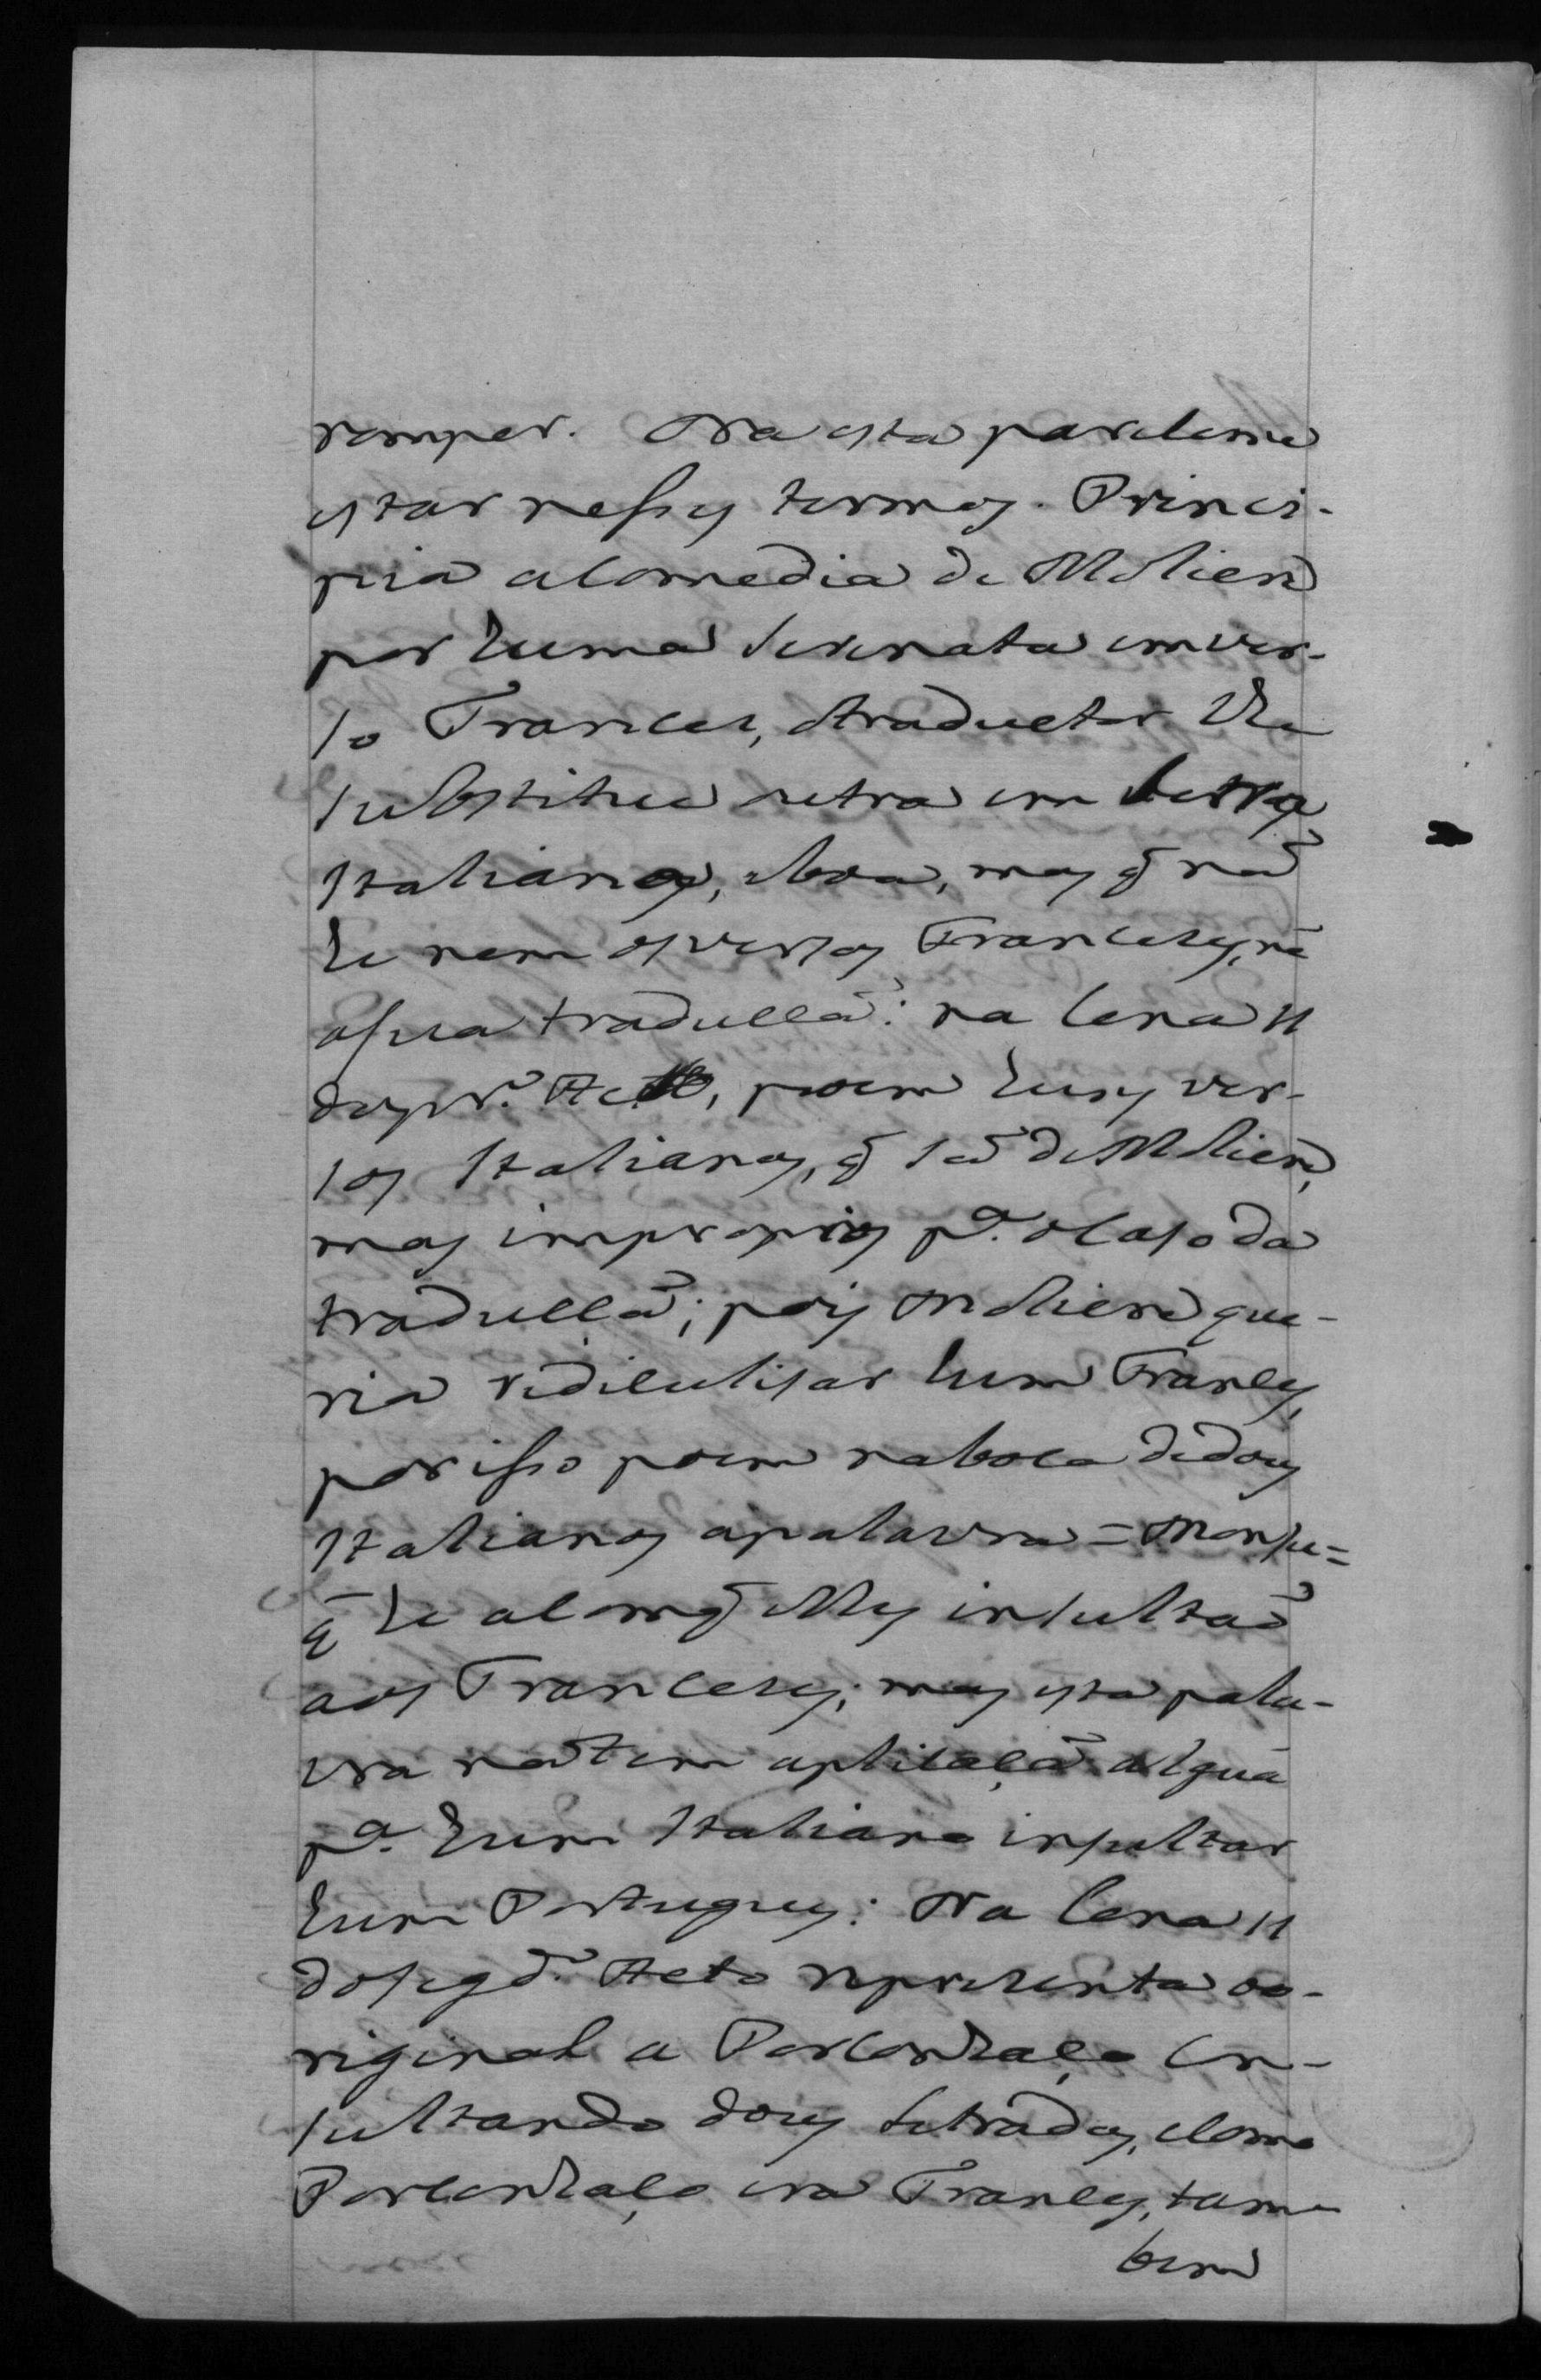 romper. Ora esta pareceme
estar nesses termos. Princi-
pia a Comedia de Moliere
por huma serenata em ver-
so Francez, o traductor lhe
substitue outra em Letra
Italiana, e boa, mas q̃ naõ
he nem os versos Francezes, nẽ
a sua traducçaõ: na Cena 11
do pr.º Acto, poem huns ver-
sos Italianos, q̃ saõ de Moliere,
mas improprios p.ª o caso da
traducçaõ; pois Moliere que-
ria ridiculisar hum Francez,
por isso poem na boca de dous
Italianos a palavra = Monsu =
q̃ he a com q̃ elles insultaõ
aos Francezes; mas esta pala-
vra naõ tem aplicaçaõ algũa
p.ª hum Italiano insultar
hum Portuguez: Na Cena 11
do seg.dº Acto representa o o-
riginal a Porconhaço con-
sultando dous Letrados, e como
Porconhaço era Francez, tam
bem